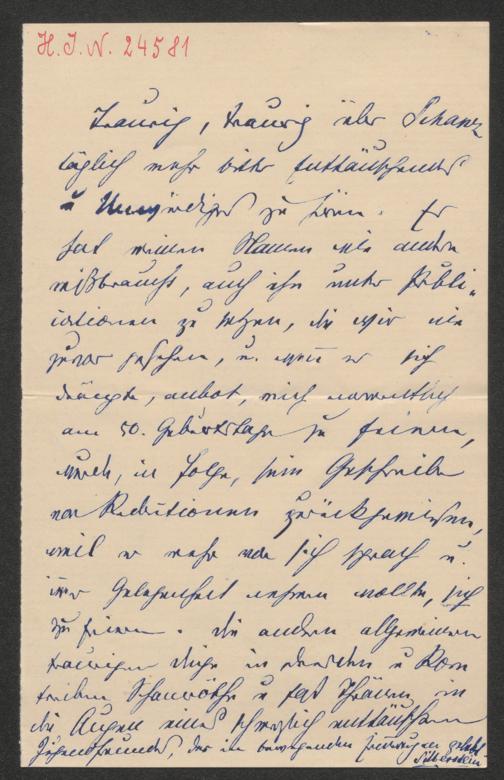 H. I. N. 24581
Traurig, traurig über Schanz
täglich mehr bitter Enttäuschendes
u Unwürdiges zu hören. Er
hat meinen Namen wie andere
mißbraucht, auch ihn unter Publi-
cationen zu setzen, die wir nie
zuvor gesehen, u. weil er sich
drängte, anbot, mich
am 50. Geburtstage zu feiern,
wurde, in Folge, sein Geschreibe
von Redactionen zurückgewiesen,
weil er mehr von sich sprach u.
nur Gelegenheit nehmen wollte, sich
zu feiern. Die andern allgemeinen
traurigen Dinge in Dresden u Rom
treiben Schamröthe u fast Thränen in
die Augen eines schmerzlich enttäuschten
Jugendfreundes der in
Silberstein